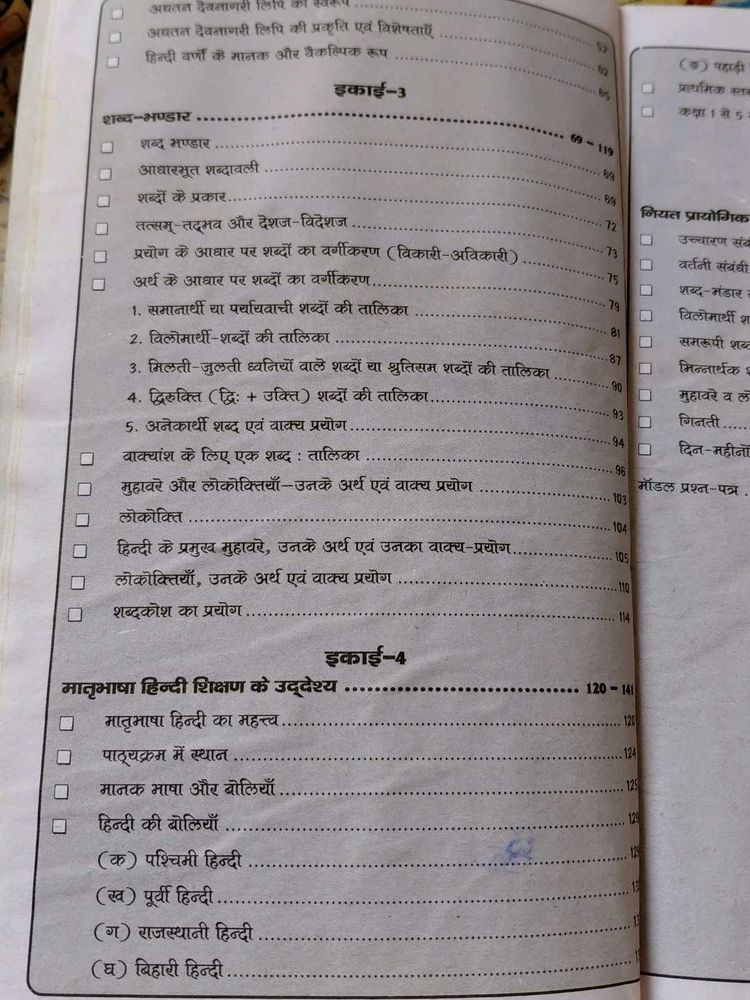 अद्यतन देवनागरी लिपि का स्वरूप
अद्यतन देवनागरी लिपि की प्रकृति एवं विशेषताएँ 62
हिन्दी वर्णों के मानक और वैकल्पिक रूप 65
इकाई-3
शब्द-भण्डार 69 - 119
शब्द भण्डार 69
आधारभूत शब्दावली 69
शब्दों के प्रकार 72
तत्सम्-तद्भव और देशज-विदेशज 73
प्रयोग के आधार पर शब्दों का वर्गीकरण (विकारी-अविकारी) 75
अर्थ के आधार पर शब्दों का वर्गीकरण 79
1. समानार्थी या पर्यायवाची शब्दों की तालिका 81
2. विलोमार्थी-शब्दों की तालिका 87
3. मिलती-जुलती ध्वनियों वाले शब्दों या श्रुतिसम शब्दों की तालिका 90
4. द्विरुक्ति (द्विः + उक्ति) शब्दों की तालिका 93
5. अनेकार्थी शब्द एवं वाक्य प्रयोग 94
वाक्यांश के लिए एक शब्द : तालिका 96
मुहावरे और लोकोक्तियाँ—उनके अर्थ एवं वाक्य प्रयोग 103
लोकोक्ति 104
हिन्दी के प्रमुख मुहावरे, उनके अर्थ एवं उनका वाक्य-प्रयोग 105
लोकोक्तियाँ, उनके अर्थ एवं वाक्य प्रयोग 110
शब्दकोश का प्रयोग 114
इकाई-4
मातृभाषा हिन्दी शिक्षण के उद्देश्य 120 - 141
मातृभाषा हिन्दी का महत्त्व 120
पाठ्यक्रम में स्थान 124
मानक भाषा और बोलियाँ 125
हिन्दी की बोलियाँ 129
(क) पश्चिमी हिन्दी
(ख) पूर्वी हिन्दी
(ग) राजस्थानी हिन्दी
(घ) बिहारी हिन्दी
(ङ) पहाड़ी
प्राथमिक
कक्षा 1 से 5
नियत प्रायोगिक
उच्चारण
वर्तनी संबंधी
शब्द-भंडार
विलोमार्थी
समरूपी
भिन्नार्थक
मुहावरे व
गिनती
दिन-महीनों
मॉडल प्रश्न-पत्र